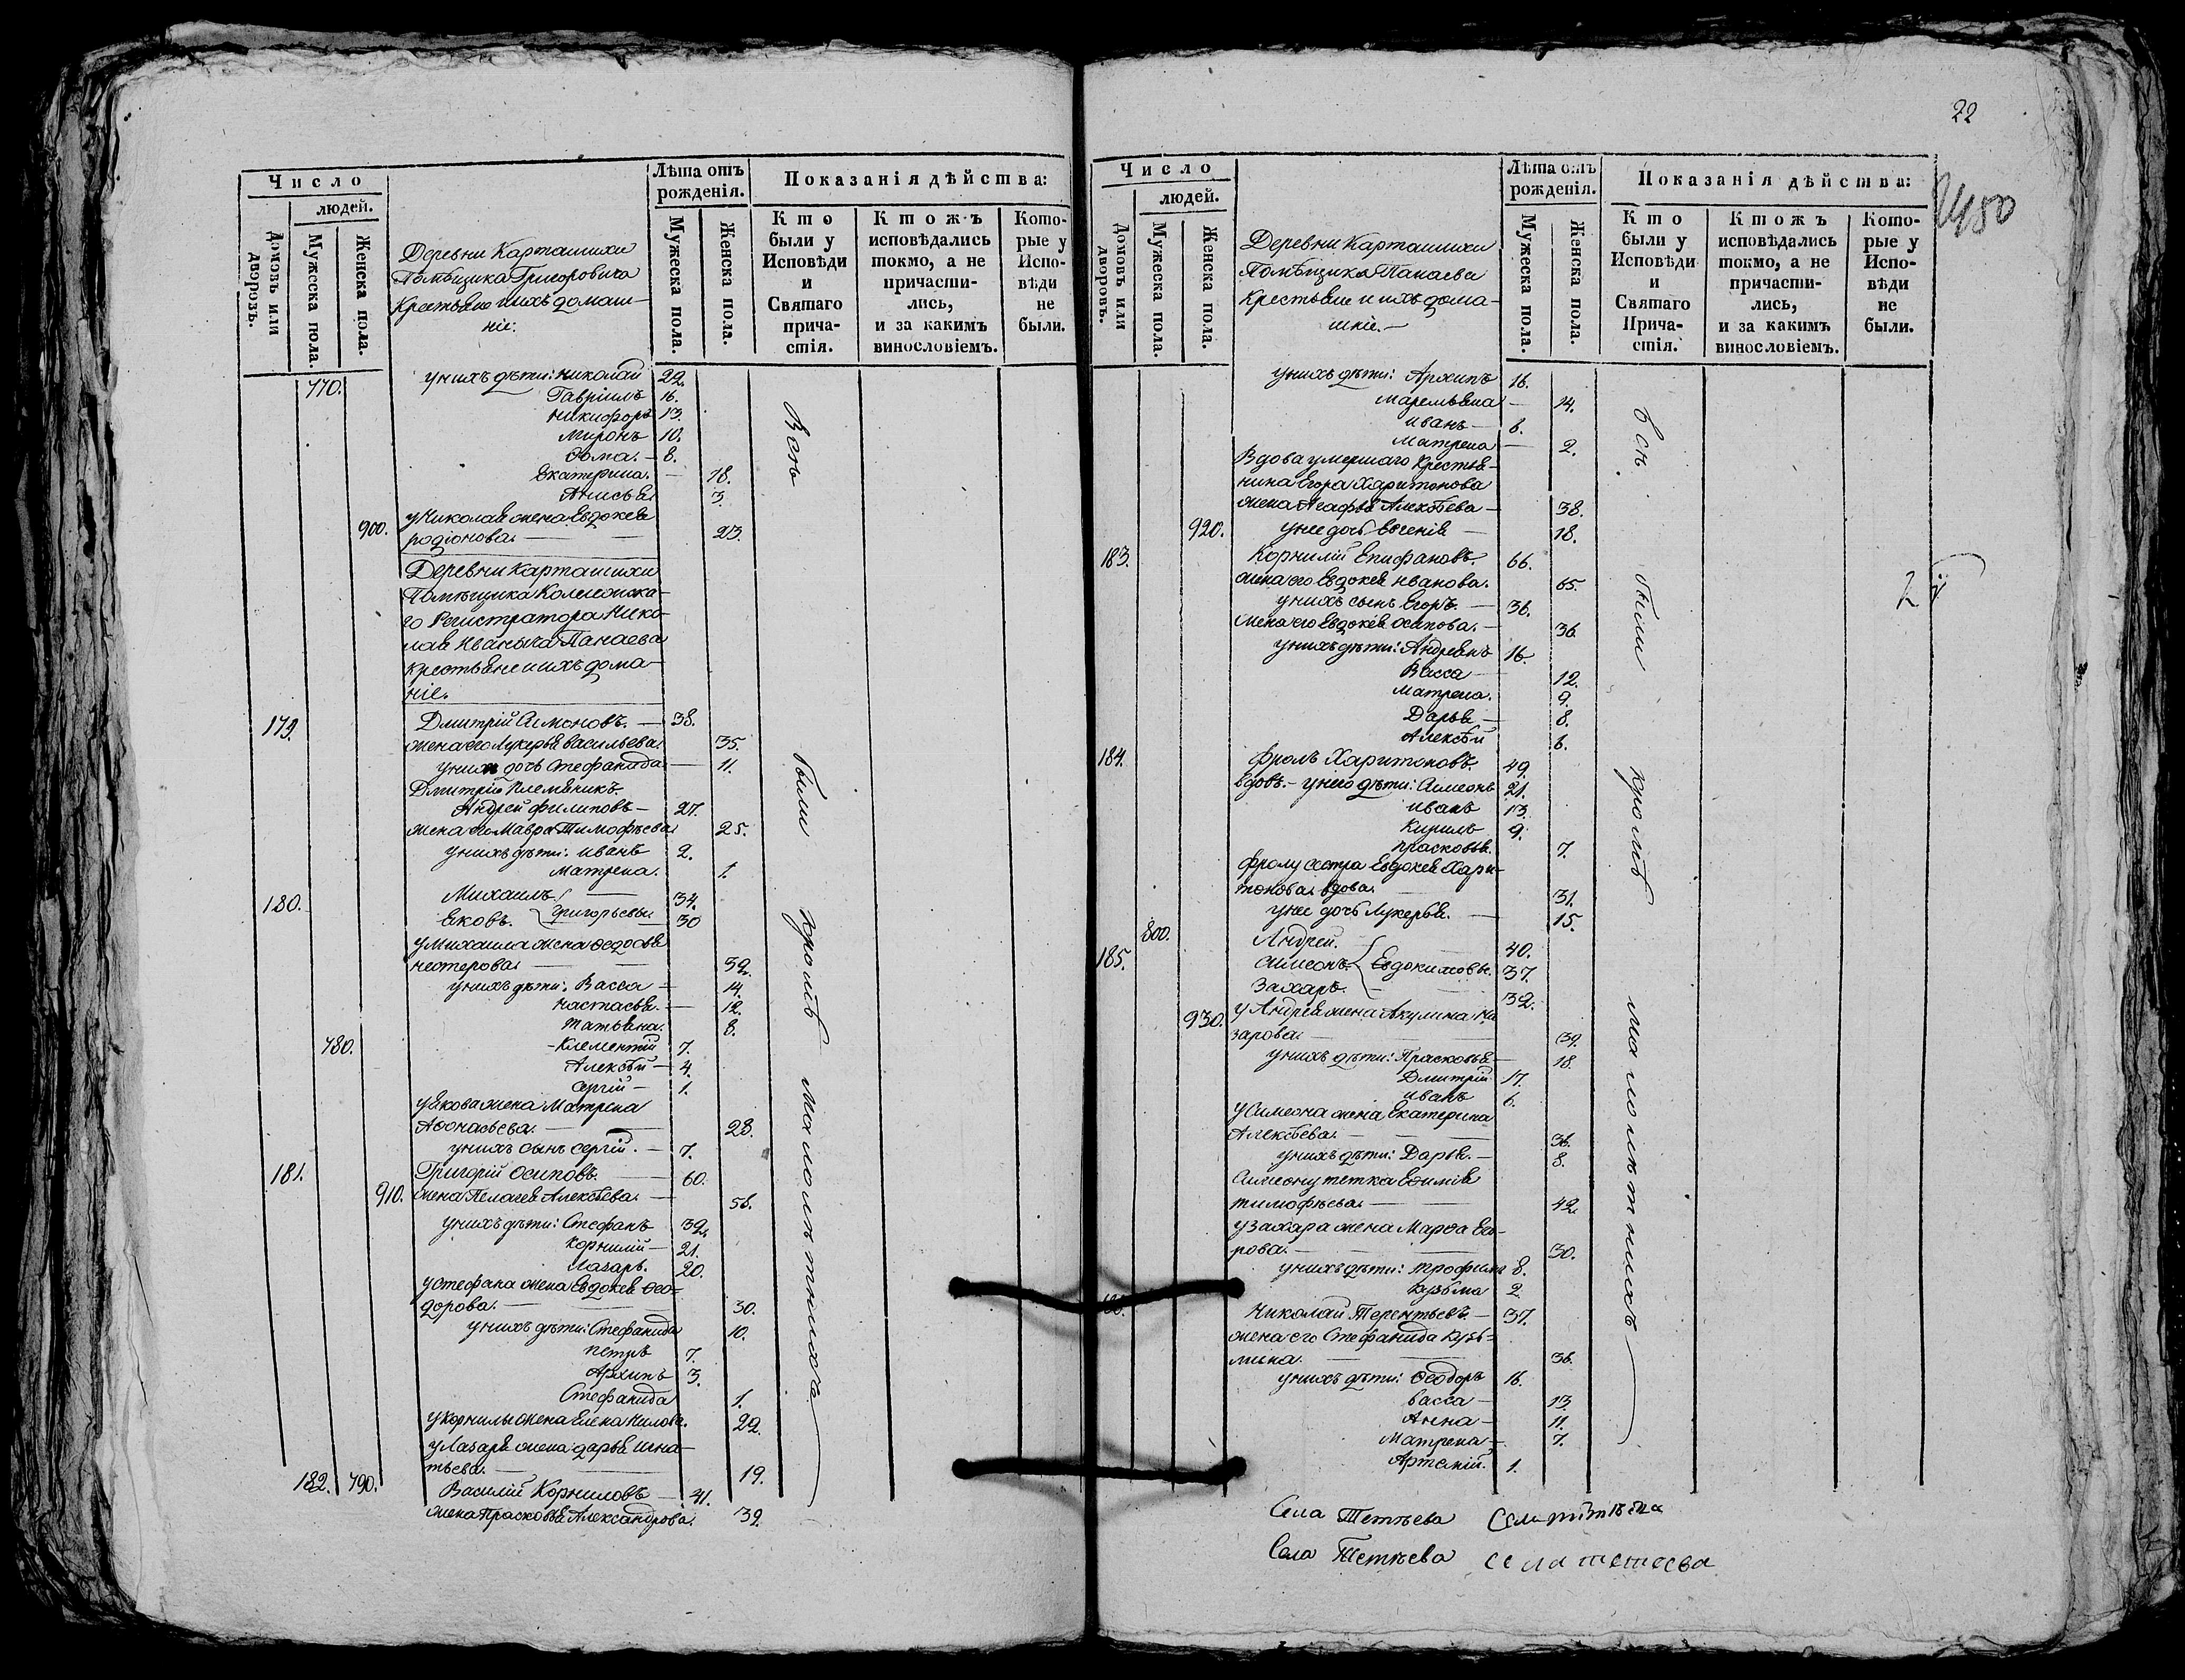 Число
людей.
Домовъ или дворовъ.
Мужеска пола.
Женска пола.
Деревни Карташихи
Помѣщика Григоровича
Крестьяне и ихъ домаш-
ніе.
Лѣта отъ
рожденія.
Мужеска пола.
Женска пола.
Показанія дѣйства:
Кто
были у
Исповѣди
и
Святаго
прича-
стія.
Ктожъ
исповѣдались
токмо, а не
причасти-
лись,
и за какимъ
винословіемъ.
Кото-
рые у
Испо-
вѣди
не
были.
770. у нихъ дѣти: Николай 22.
Гавріилъ 16.
Никифоръ 13.
Миронъ 10.
Ѳома. 8.
Екатерина. 18.
Анисья 3.
у Николая жена Евдокея
900. родіонова. 23.
Деревни Карташихи
Помѣщика Коллежска-
го Регистратора Нико-
лая Иваныча Панаева
крестьяне и ихъ дома-
ніе.
179. Дмитрій Симоновъ. 38.
жена его Лукерья Васильева. 35.
у них дочь Стефанида 11.
Дмитрію Племяникъ
Андрей Филиповъ 27.
жена его Мавра Тимофѣева 25.
у нихъ дѣти: Иванъ 2.
Матрена. 1.
180. Михаилъ 34.
Яковъ. Григорьевы 30
у Михаила жена Ѳедосья
нестерова. 32.
у нихъ дѣти: Васса 14.
Настасья. 12.
Татьяна. 8.
780. Клементій 7.
Алексѣй 4.
Сергій 1.
у Якова жена Матрена
Аѳонасьева. 28.
у нихъ сынъ Сергій. 7.
181. Григорій Осиповъ. 60.
910. жена Пелагея Алексѣева. 56.
у нихъ дѣти: Стефанъ 32.
Корнилій 21.
Лазарь. 20.
у Стефана жена Евдокея Ѳео-
дорова. 30.
у нихъ дѣти: Стефанида 10.
Петръ 7.
Архипъ 3.
Стефанида 1.
у Корнилы жена Елена Нилова. 22.
у Лазаря жена Дарья Игна-
тьева. 19.
182. 790. Василій Корниловъ 41.
жена Прасковья Александрова. 39.
Всѣ были кромѣ малолѣтнихъ
22
2450
Число
людей.
Домовъ или дворовъ.
Мужеска пола.
Женска пола.
Деревни Карташихи
Помѣщика Панаева
Крестьяне и ихъ дома-
шніе.
Лѣта отъ
рожденія.
Мужеска пола.
Женска пола.
Показанія дѣйства:
Кто
были у
Исповѣди
и
Святаго
Прича-
стія.
Ктожъ
исповѣдались
токмо, а не
причасти-
лись,
и за какимъ
винословіемъ.
Кото-
рые у
Испо-
вѣди
не
были.
у нихъ дѣти: Архипъ 16.
Маремьяна 14.
Иванъ 6.
Матрена 2.
Вдова умершаго Крестья-
нина Егора Харитонова
жена Агафья Алексѣева 38.
920. у нее дочь Евгенія 18.
183. Корнилій Епифановъ. 66.
жена его Евдокея Иванова. 65.
у нихъ сынъ Егоръ. 36.
жена его Евдокея Осипова. 36
у нихъ дѣти: Андреянъ 16.
Васса 12.
Матрена. 9.
Дарья 8.
Алексѣй 6.
184. Фролъ Харитоновъ. 49.
вдовъ. у него дѣти: Симеонъ 21.
Иванъ 13.
Кирилъ 9.
Прасковья. 7.
Фролу сестра Евдокея Хари-
тонова вдова. 31.
у нее дочь Лукерья. 15.
800. Андрей. 40.
185. Симеонъ. Евдокимовы. 37.
Захаръ. 32.
930. у Андрея жена Акулина На
зарова. 39.
у нихъ дѣти: Прасковья 18.
Дмитрій 17.
Иванъ 6.
у Симеона жена Екатерина
Алексѣева. 36.
у нихъ дѣти: Дарья. 8.
Симеону тетка Евѳимія
тимофѣева. 42.
у Захара жена Марѳа Его-
рова. 30.
у нихъ дѣти: Трофимъ 8.
Кузьма 2.
Николай Терентьевъ. 37.
жена его Стефанида Кузь-
мина. 36.
у нихъ дѣти: Ѳеодоръ 16.
Васса 13
Анна 11.
Матрена 7.
Артемій. 1.
Всѣ были кромѣ малолѣтнихъ
Села Тетѣева
Села Тетѣева села тетеева